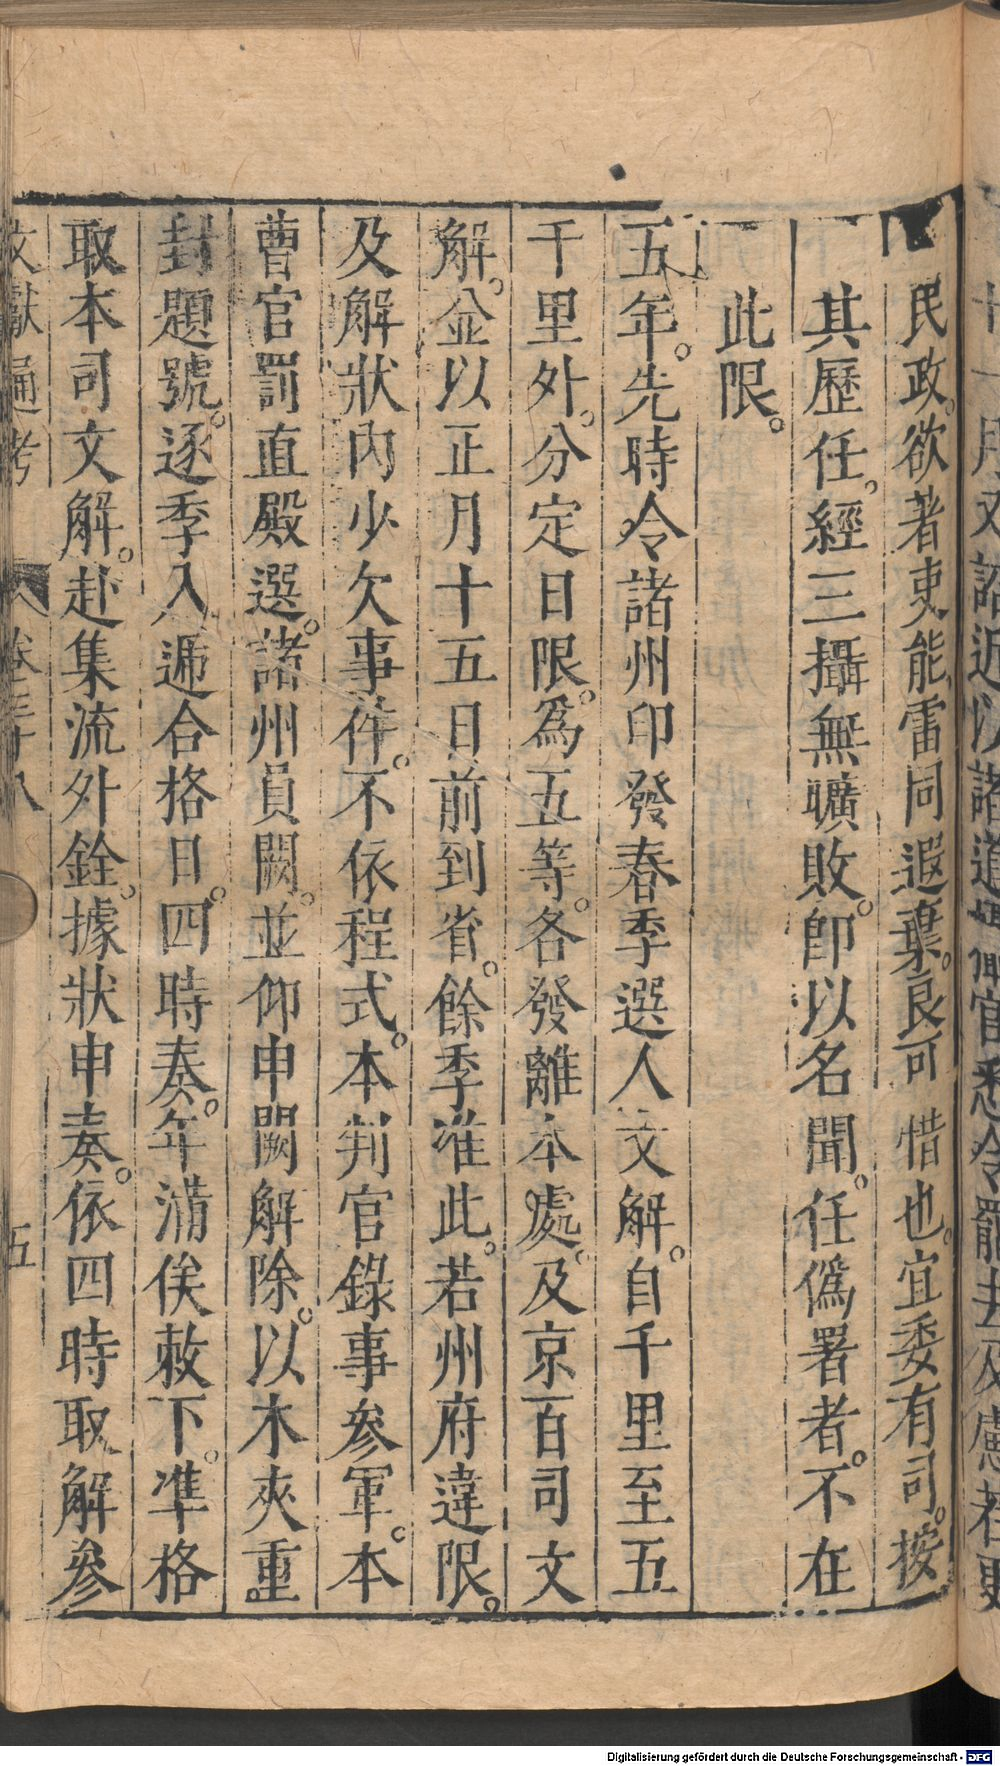 民政。欲著吏能。雷同遐棄。良可惜也。宜委有司。按
其歷任。經三攝無曠敗。卽以名聞。任僞署者。不在
此限。
五年。先時令諸州印發春季選人文解。自千里至五
千里外。分定日限。爲五等。各發離本處。及京百司文
解。並以正月十五日前到省。餘季准此。若州府違限。
及解狀內少欠事件。不依程式。本判官錄事參軍。本
曹官罰直殿選。諸州員闕。並仰申闕解除。以木夾重
封題號。逐季入遞合格日。四時奏。年滿俟敕下。準格
取本司文解。赴集流外銓。據狀申奏。依四時取解參
文獻通考
卷三十八
五
Digitalisierung gefördert durch die Deutsche Forschungsgemeinschaft - DFG